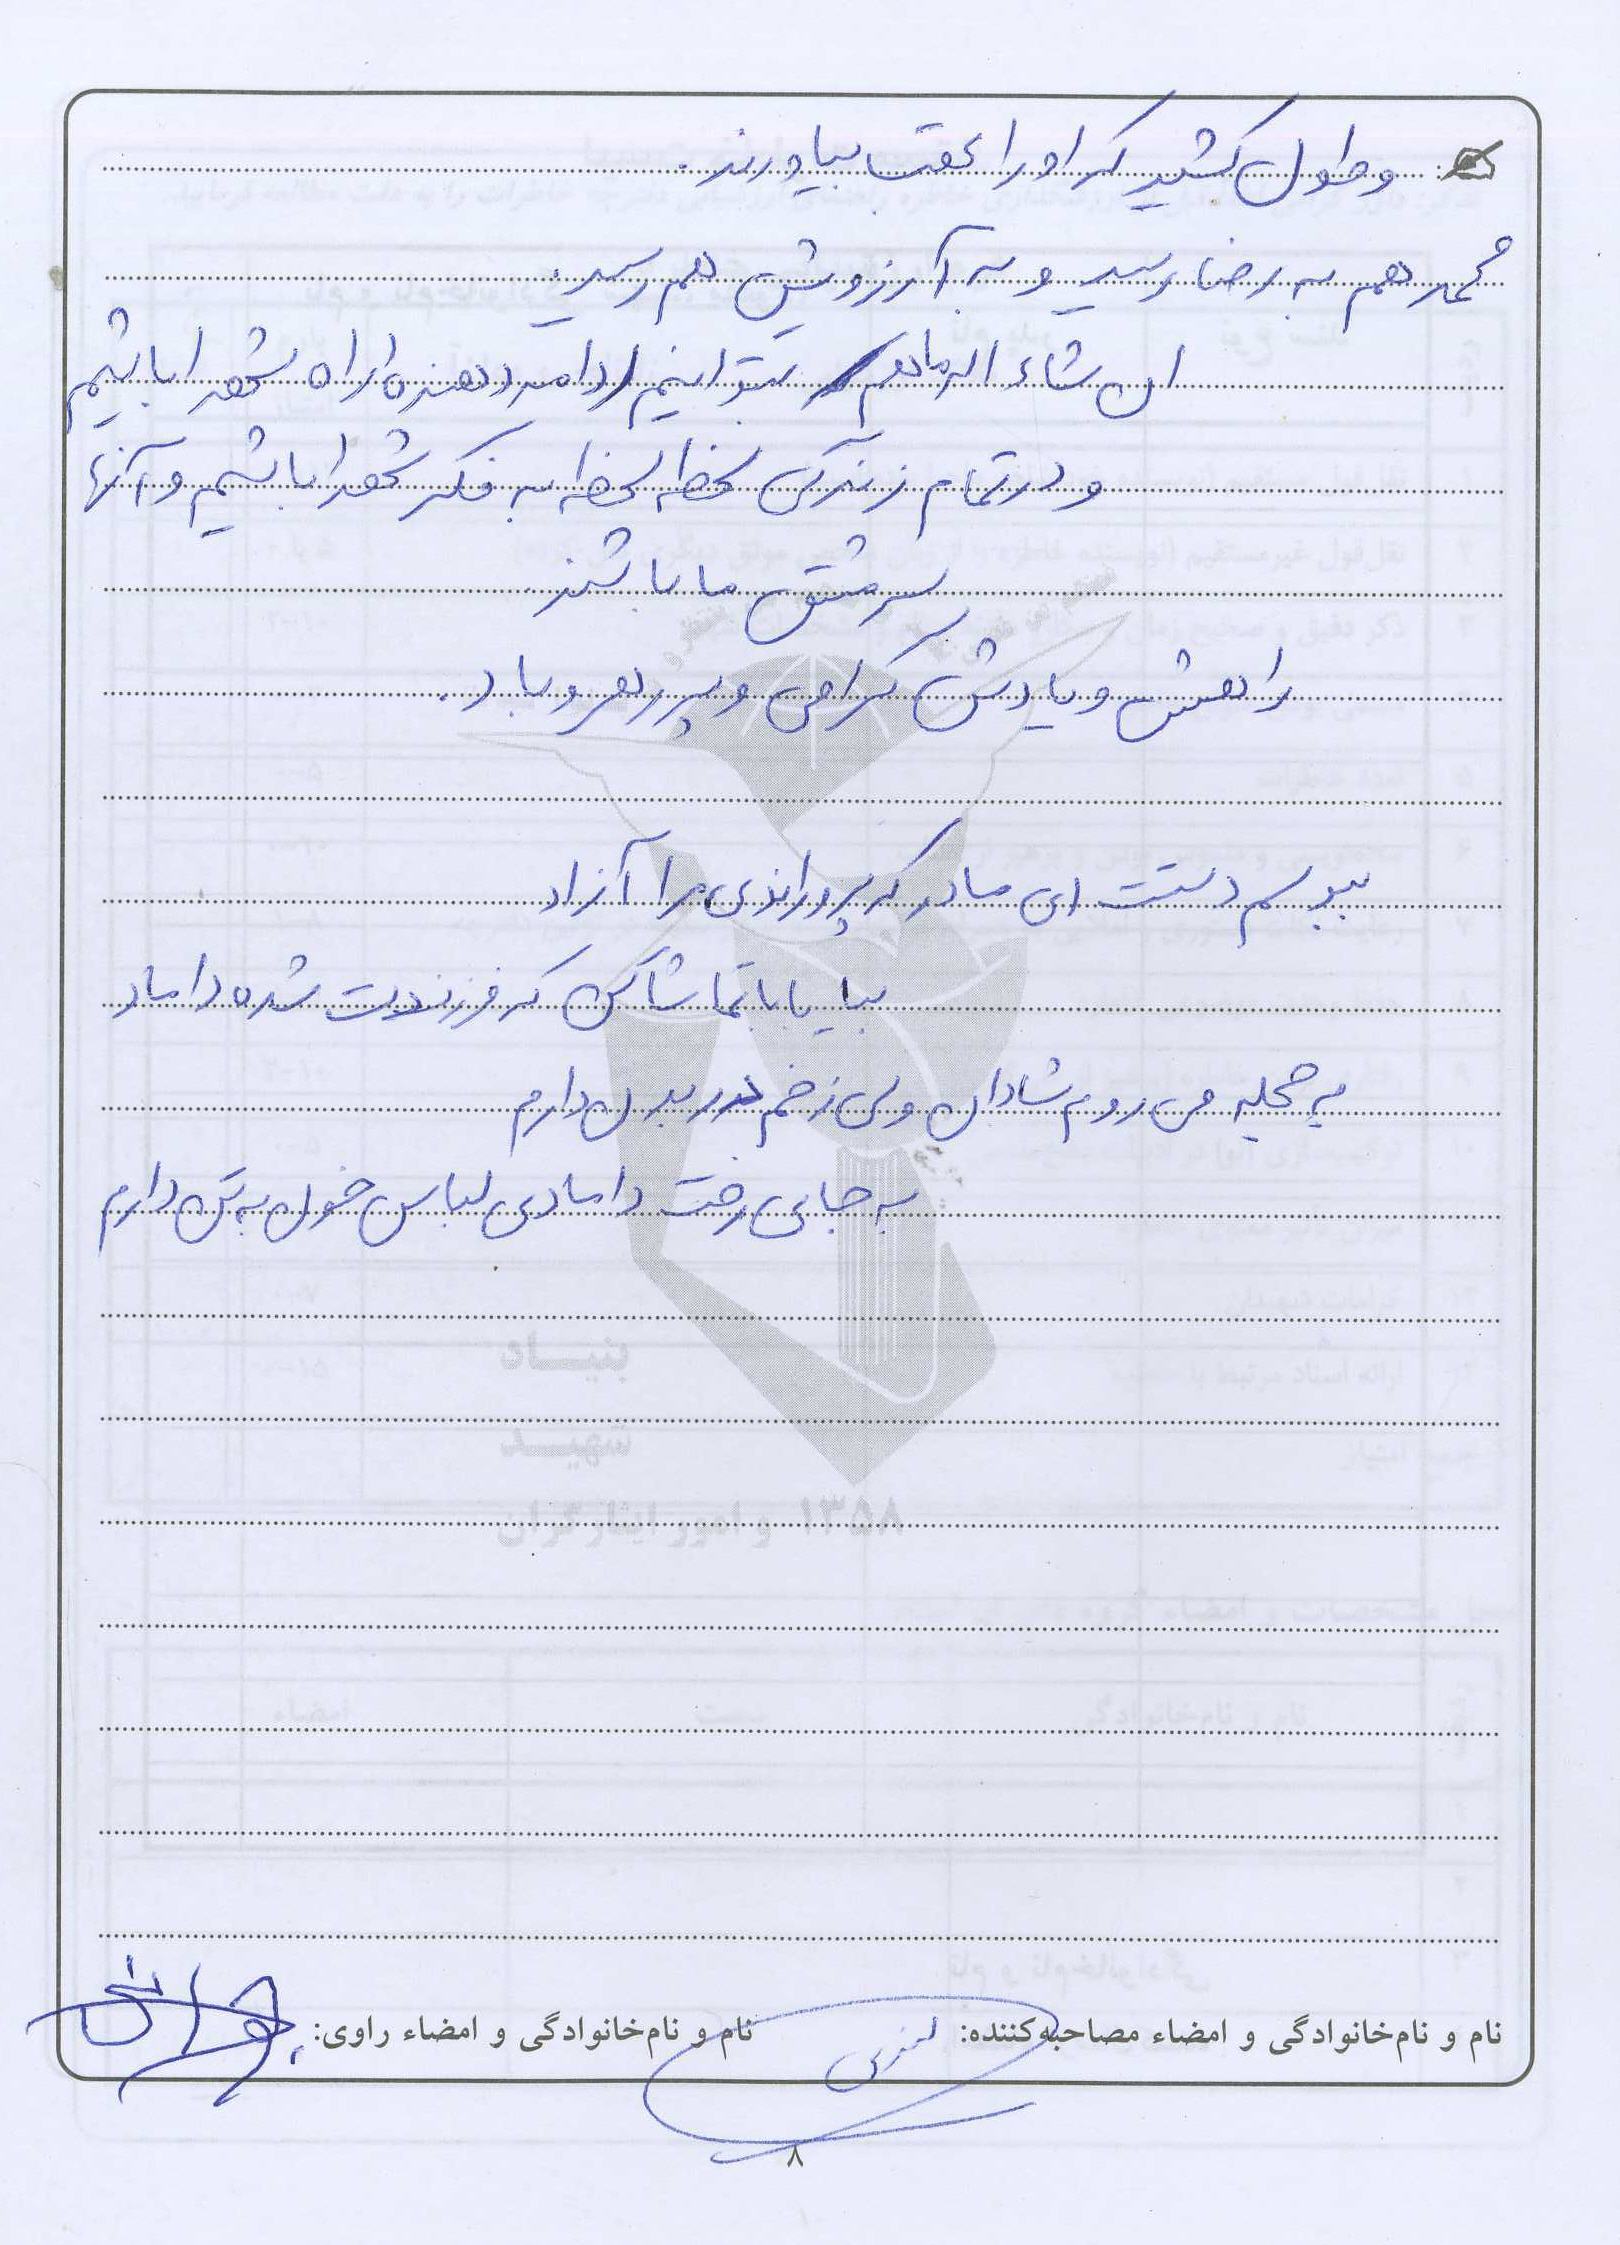 و طول کشید که او را عقب بیاورند.
محمد هم به رضا رسید و به آرزویش هم رسید.
ان شاء اله ما هم بتوانیم ادامه دهنده راه شهدا باشیم
و در تمام زندگی لحظه لحظه به فکر شهدا باشیم و آنها
سرمشق ما باشند.
راهش و یادش گرامی و پر رهرو باد.
ببوسم دستت ای مادر که پروراندی مرا آزاد
بیا بابا تماشا کن که فرزندت شده داماد
به حجله می روم شادان ولی زخم در بدن دارم
به جای رخت دامادی لباس خون به تن دارم
بنیاد
شهید
۱۳۵۸ و امور ایثارگران
نام و نام‌خانوادگی و امضاء مصاحبه‌کننده: نام و نام‌خانوادگی و امضاء راوی:
۸